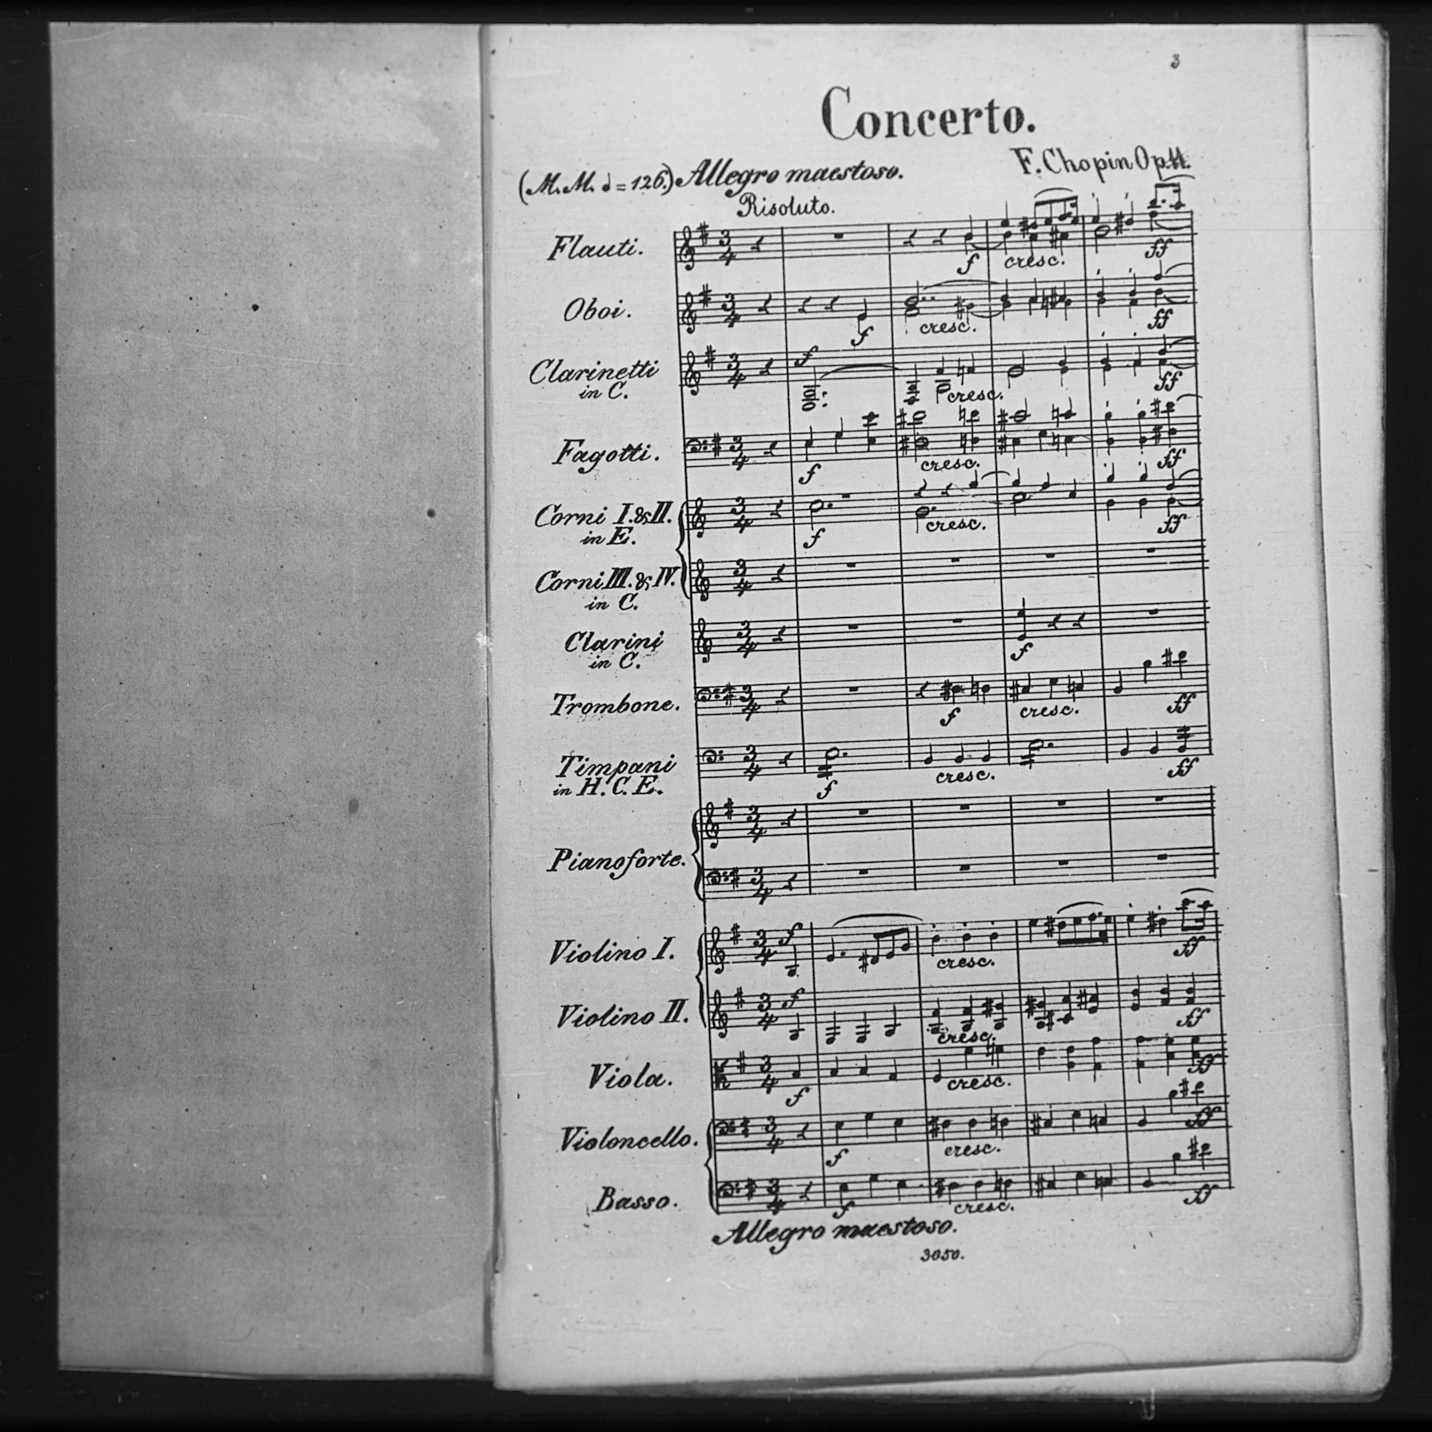 3
Concerto.
(M.M. 𝅗𝅥 = 126.) Allegro maestoso.
F. Chopin Op 11.
Risoluto.
Flauti.
f cresc. ff
Oboi.
f cresc. ff
Clarinetti
in C.
f cresc. ff
Fagotti.
f cresc. ff
Corni I. & II.
in E.
f cresc. ff
Corni III. & IV.
in C.
Clarini
in C.
f
Trombone.
f cresc. ff
Timpani
in H. C. E.
f cresc. ff
Pianoforte.
Violino I.
f cresc. ff
Violino II.
f cresc. ff
Viola.
f cresc. ff
Violoncello.
f cresc. ff
Basso.
f cresc. ff
Allegro maestoso.
3050.